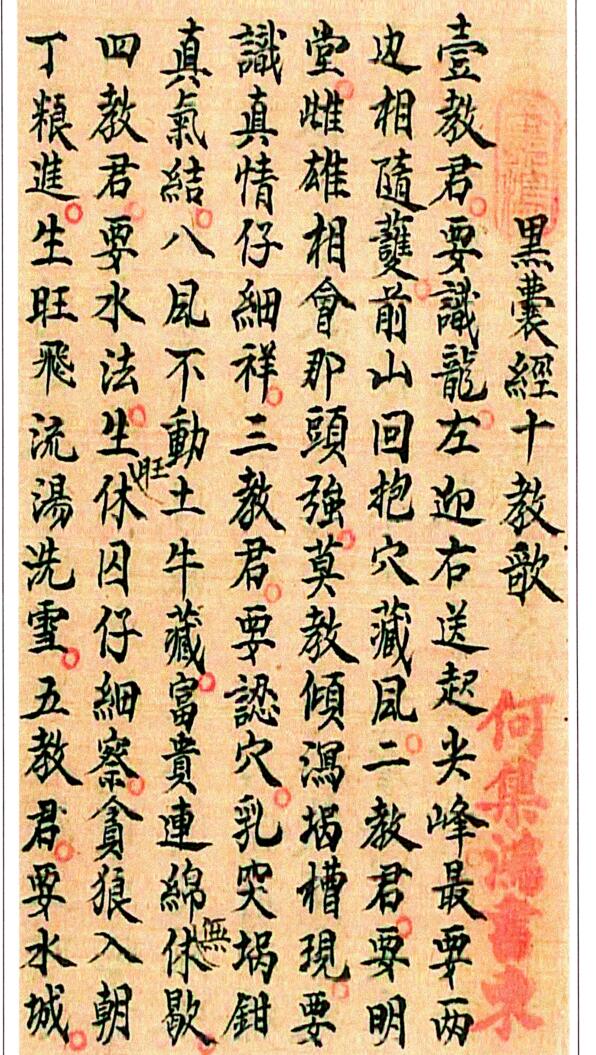 黑囊經十教歌
壹教君要識龍左迎右送起尖峰最要两
边相隨護前山回抱穴藏风二教君要明
堂雌雄相會那頭強莫教傾瀉堝槽現要
識真情仔細祥三教君要認穴乳突堝鉗
真氣結八风不動土牛藏富貴連綿休無歇
四教君要水法生旺休囚仔細察貪狼入朝
丁粮進生旺飛流湯洗雪五教君要水城
何集鴻書柬